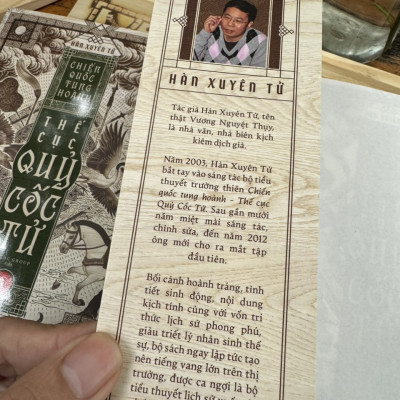 HÀN XUYÊN TỬ
CHIẾN
QUỐC
TUNG
HOÀNH
THẾ
CỤC
QUỶ
CỐC
TỬ
HÀN XUYÊN TỬ
Tác giả Hàn Xuyên Tử, tên
thật Vương Nguyệt Thụy,
là nhà văn, nhà biên kịch
kiêm dịch giả.
Năm 2003, Hàn Xuyên Tử
bắt tay vào sáng tác bộ tiểu
thuyết trường thiên Chiến
quốc tung hoành - Thế cục
Quỷ Cốc Tử. Sau gần mười
năm miệt mài sáng tác,
chỉnh sửa, đến năm 2012
ông mới cho ra mắt tập
đầu tiên.
Bối cảnh hoành tráng, tình
tiết sinh động, nội dung
kịch tính cùng với vốn tri
thức lịch sử phong phú,
giàu triết lý nhân sinh thế
sự, bộ sách ngay lập tức tạo
nên tiếng vang lớn trên thị
trường, được ca ngợi là bộ
tiểu thuyết lịch sử